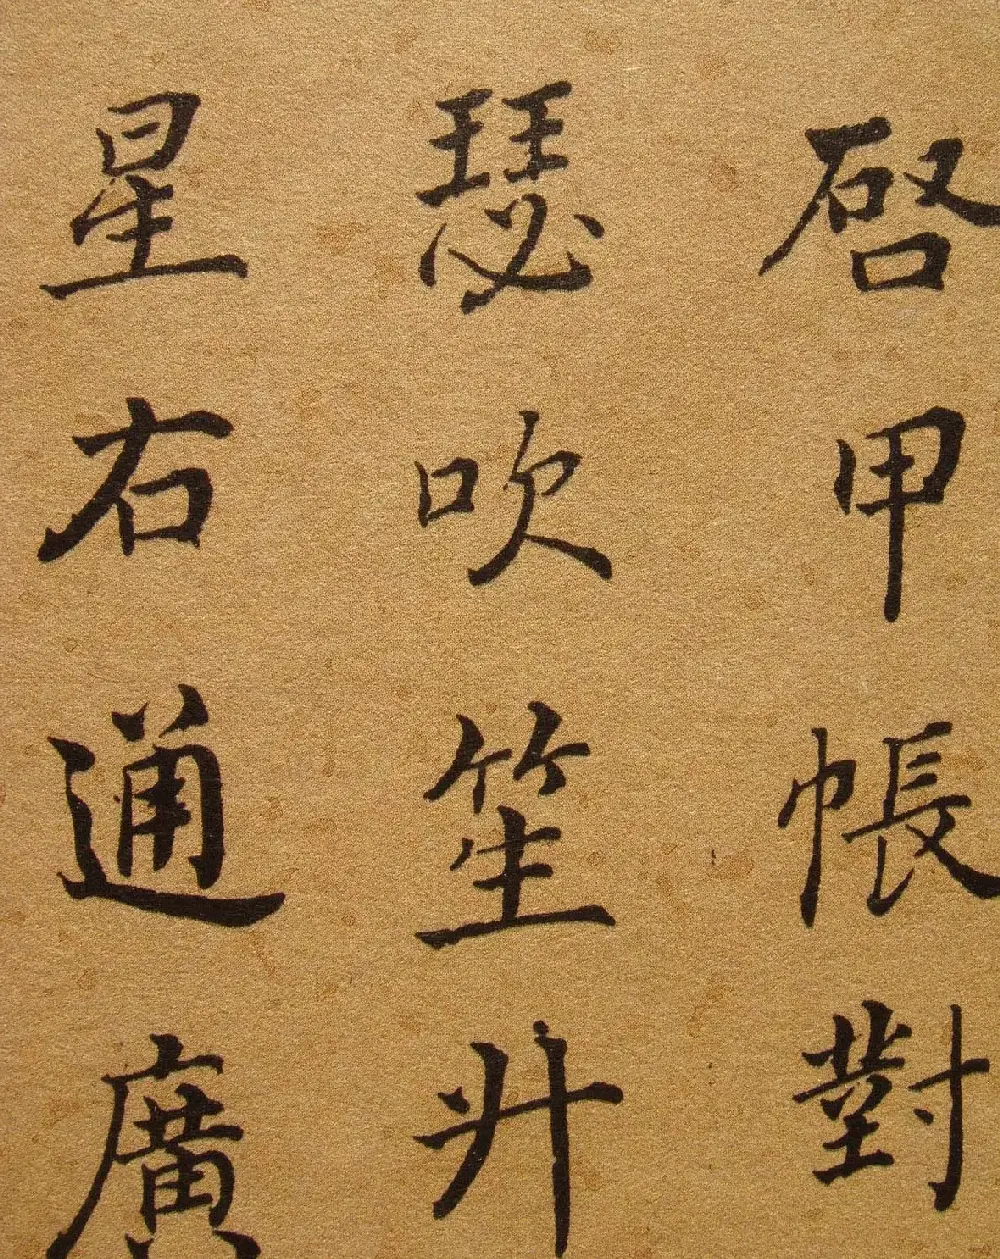 啓甲帳對
瑟吹笙升
星右通廣